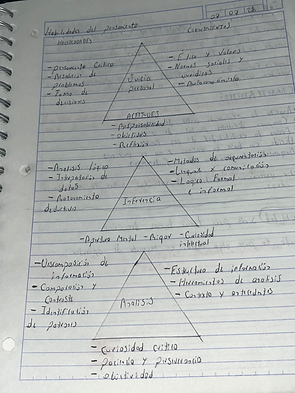 Habilidades del pensamiento
07 / 07 / 26
HABILIDADES
CONOCIMIENTOS
- pensamiento Critico
- Resolución de
problemas
- Toma de
decisiones
Juicio
personal
- Etica y Valores
- Normas sociales y
- Autoconocimiento
ACTITUDES
- Responsabilidad
- objetividad
- Reflexión
- Analisis lógico
- Interpretación de
datos
- Razonamiento
deductivo
Inferencia
- Metodos de argumentación
- Lenguaje y comunicación
- Logica Formal
e informal
- Apertura Mental - Rigor - Curiosidad
intelectual
- Descomposición de
información
- Comparación y
Contraste
- Identificación
de patrones
Analisis
- Estructura de información
- Herramientas de analisis
- Contexto y antecedentes
- Curiosidad critica
- paciencia y perseverancia
- objetividad